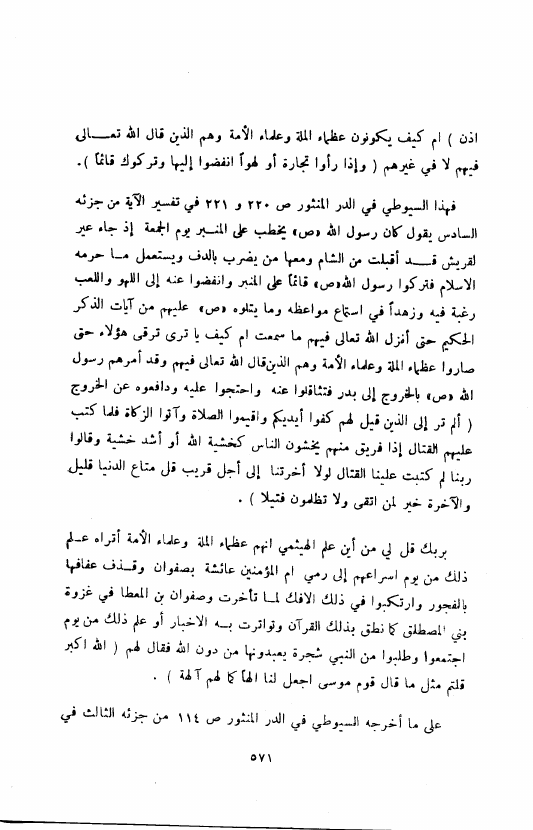 اذن ) ام كيف يكونون عظماء الملة وعلماء الأمة وهم الذين قال الله تعـــالى
فيهم لا في غيرهم ( وإذا رأوا تجارة أو لهواً انفضوا إليها وتركوك قائماً ) .
فهذا السيوطي في الدر المنثور ص ٢٢٠ و ٢٢١ في تفسير الآية من جزئه
السادس يقول كان رسول الله «ص» يخطب على المنـبر يوم الجمعة إذ جاء عير
لقريش قـــد أقبلت من الشام ومعها من يضرب بالدف ويستعمل مـا حرمه
الاسلام فتركوا رسول الله «ص» قائماً على المنبر وانفضوا عنه إلى اللهو واللعب
رغبة فيه وزهداً في استماع مواعظه وما يتلوه «ص» عليهم من آيات الذكر
الحكيم حتى أنزل الله تعالى فيهم ما سمعت ام كيف يا ترى ترقى هؤلاء حتى
صاروا عظماء الملة وعلماء الأمة وهم الذين قال الله تعالى فيهم وقد أمرهم رسول
الله «ص» بالخروج إلى بدر فتثاقلوا عنه واحتجوا عليه ودافعوه عن الخروج
( ألم تر إلى الذين قيل لهم كفوا أيديكم واقيموا الصلاة وآتوا الزكاة فلما كتب
عليهم القتال إذا فريق منهم يخشون الناس كخشية الله أو أشد خشية وقالوا
ربنا لم كتبت علينا القتال لولا أخرتنا إلى أجل قريب قل متاع الدنيا قليل
والآخرة خير لمن اتقى ولا تظلمون فتيلا ) .
بربك قل لي من أين علم الهيثمي انهم عظماء الملة وعلماء الأمة أتراه عـلم
ذلك من يوم اسراعهم إلى رمي ام المؤمنين عائشة بصفوان وقـذف عفافها
بالفجور وارتكبوا في ذلك الافك لمـا تأخرت وصفوان بن المعطا في غزوة
بني المصطلق كما نطق بذلك القرآن وتواترت بـه الاخبار أو علم ذلك من يوم
اجتمعوا وطلبوا من النبي شجرة يعبدونها من دون الله فقال لهم ( الله اكبر
قلتم مثل ما قال قوم موسى اجعل لنا الهاً كما لهم آلهة ) .
على ما أخرجه السيوطي في الدر المنثور ص ١١٤ من جزئه الثالث في
٥٧١